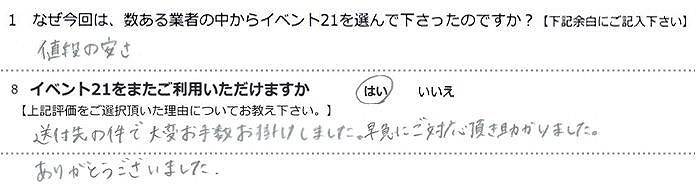 1 なぜ今回は、数ある業者の中からイベント21を選んで下さったのですか？【下記余白にご記入下さい】
値段の安さ
8 イベント21をまたご利用いただけますか はい いいえ
【上記評価をご選択頂いた理由についてお教え下さい。】
送付先の件で大変お手数お掛けしました。早急にご対応頂き助かりました。
ありがとうございました.